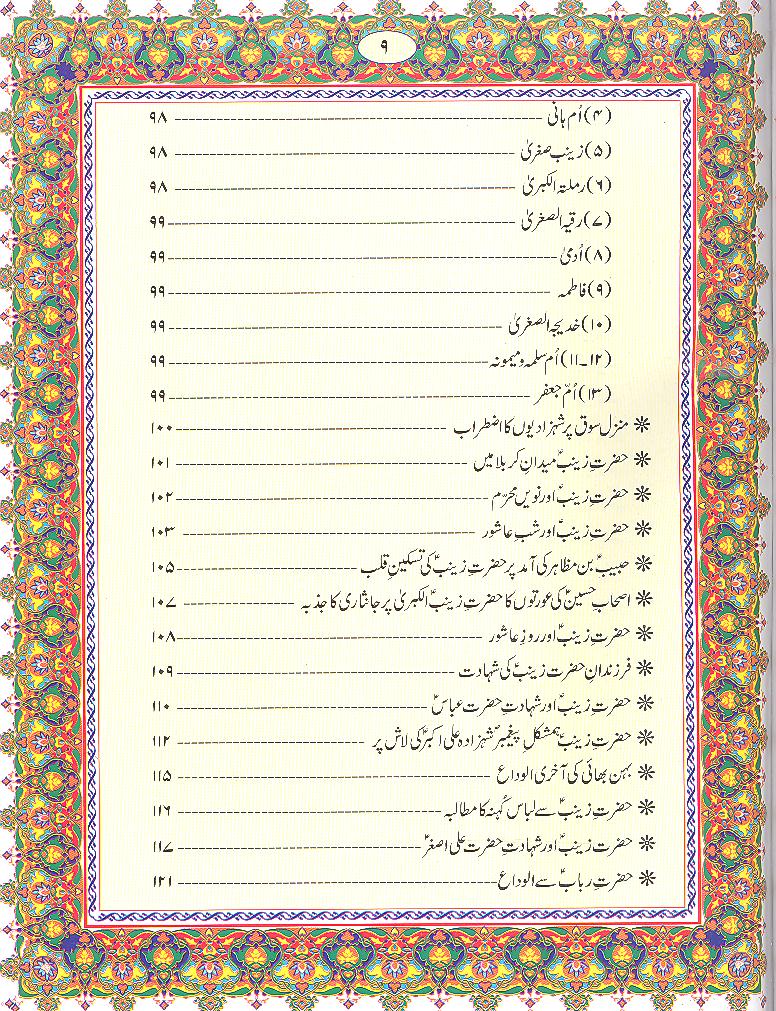 ۹
(۴) اُم ہانی ۹۸
(۵) زینب صغریٰ ۹۸
(۶) رملتہ الکبریٰ ۹۸
(۷) رقیہ الصغریٰ ۹۹
(۸) اُدمیٰ ۹۹
(۹) فاطمہ ۹۹
(۱۰) خدیجہ الصغریٰ ۹۹
(۱۱۔۱۲) اُم سلمہ و میمونہ ۹۹
(۱۳) اُمّ جعفر ۹۹
❋ منزل سوق پر شہزادیوں کا اضطراب ۱۰۰
❋ حضرتِ زینبؑ میدانِ کربلا میں ۱۰۱
❋ حضرتِ زینبؑ اور نویں محرّم ۱۰۲
❋ حضرتِ زینبؑ اور شبِ عاشور ۱۰۳
❋ حبیبؑ بن مظاہر کی آمد پر حضرتِ زینبؑ کی تسکینِ قلب ۱۰۵
❋ اصحابِ حسینؑ کی عورتوں کا حضرتِ زینبؑ الکبریٰ پر جانثاری کا جذبہ ۱۰۷
❋ حضرتِ زینبؑ اور روزِ عاشور ۱۰۸
❋ فرزندانِ حضرت زینبؑ کی شہادت ۱۰۹
❋ حضرتِ زینبؑ اور شہادتِ حضرت عباسؑ ۱۱۰
❋ حضرتِ زینبؑ ہمشکلِ پیغمبرؐ شہزادہ علی اکبرؑ کی لاش پر ۱۱۲
❋ بہن بھائی کی آخری الوداع ۱۱۵
❋ حضرتِ زینبؑ سے لباس کُہنہ کا مطالبہ ۱۱۶
❋ حضرتِ زینبؑ اور شہادتِ حضرت علی اصغرؑ ۱۱۷
❋ حضرتِ ربابؑ سے الوداع ۱۲۱